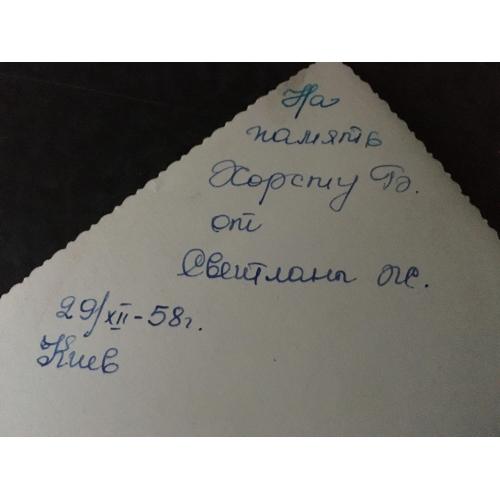 На
память
Хорсту Б.
от
Светланы Ж.
29/XII-58г.
Киев